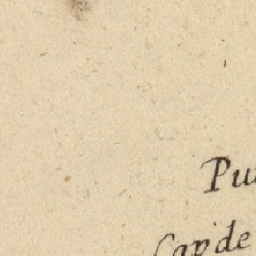 Pu
Cap de